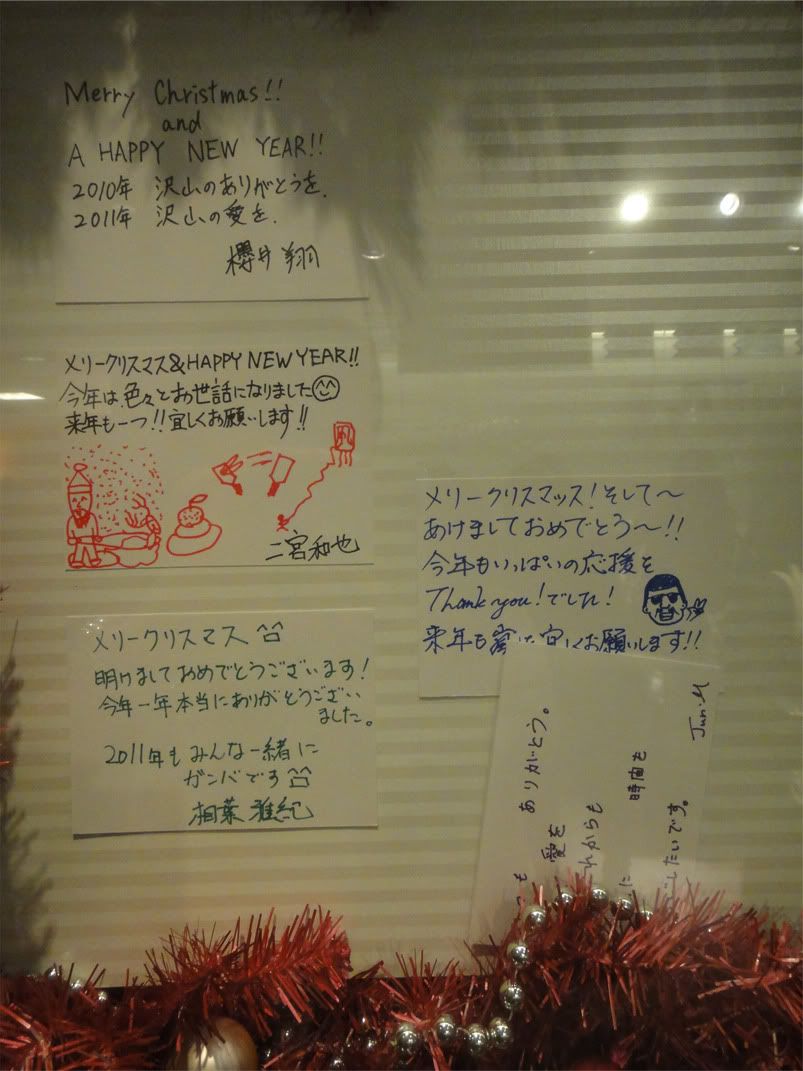 Merry Christmas!!
and
A HAPPY NEW YEAR!!
2010年 沢山のありがとうを.
2011年 沢山の愛を.
櫻井翔
メリークリスマス&HAPPY NEW YEAR!!
今年は色々とお世話になりました
来年も一つ!!宜しくお願いします!!
二宮和也
メリークリスマス
明けましておめでとうございます!
今年一年本当にありがとうござい
ました。
2011年もみんな一緒に
ガンバです
相葉雅紀
メリークリスマッス!そして〜
あけましておめでとう〜!!
今年もいっぱいの応援を
Thank you!でした!
来年も宜しくお願いします!!
も ありがとう。
愛を
これからも
に 時間も
ごしたいです。
Jun.M